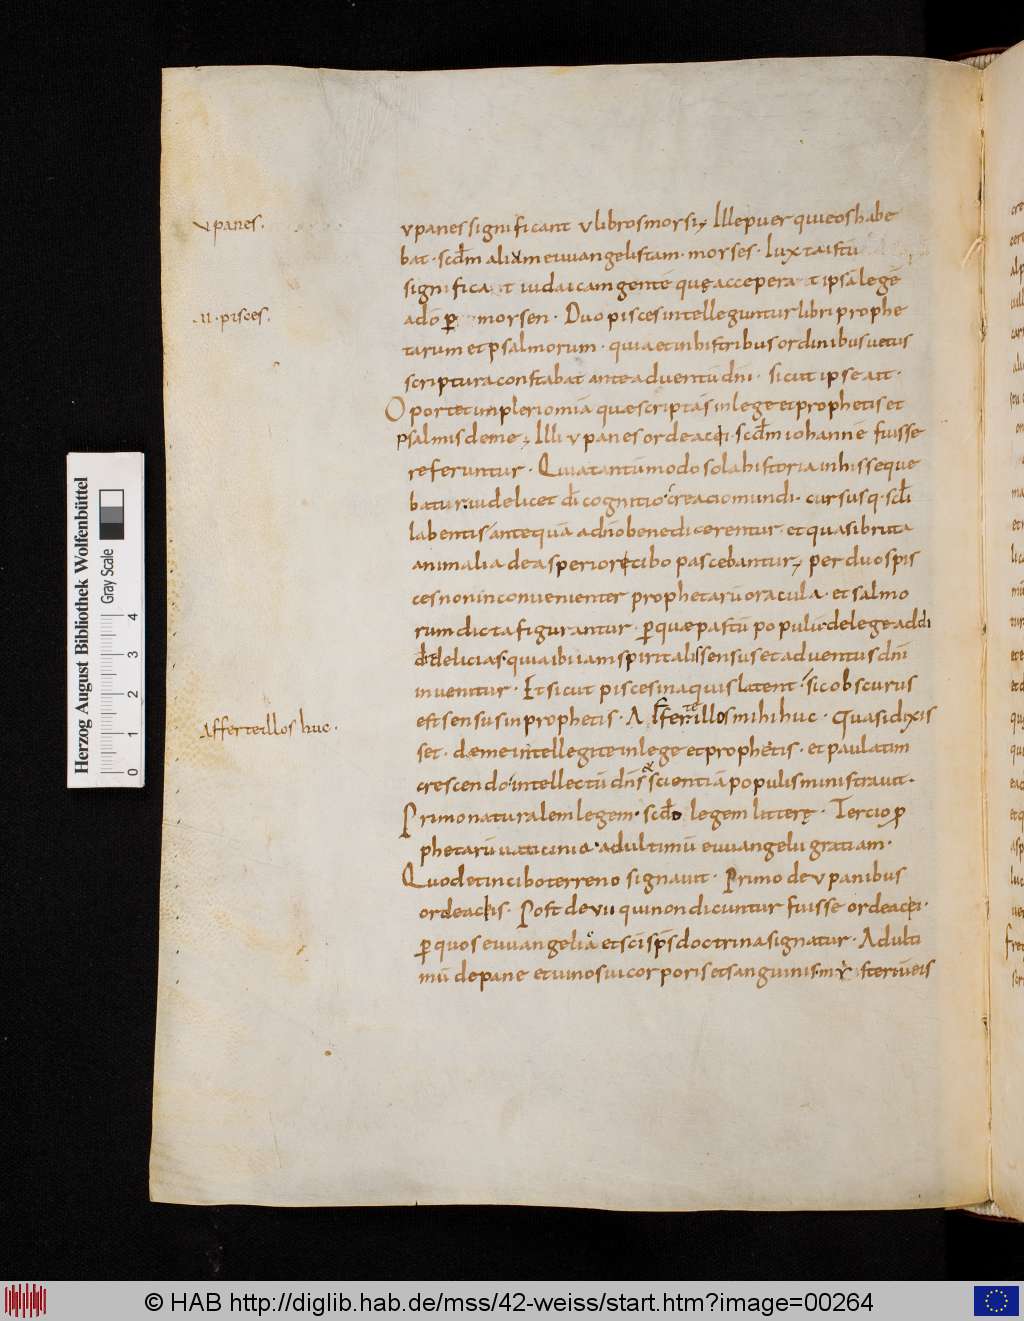 v panes.
v panes significant v libros morsi; Ille puer qui eos habe
bat · scdm aliam euuangelistam · morses · Iuxta istu
significant iudaicam gente que accepera t ipsa lege
.II. pisces.
ado p morsen · Duo pisces intelleguntur libri prophe
tarum et psalmorum · quia et in his tribus ordinibus uetus
scriptura constabat ante aduentu dni · sicut ipse ait ·
Oportet impleri omia quae scripta s in lege et prophetis et
psalmis de me; Illi v panes ordeacei · scdm iohanne fuisse
referuntur · Quia tantu modo sola historia in his seque
batur · uidelicet di cognitio · creacio mundi · cursusq · scli
labentis · antequa a dno benedicerentur · et quasi bruta
animalia de asperiore cibo pascebantur; per duos pis
ces non inconuenienter prophetaru oracula · et salmo
rum dicta figurantur · p quae pastu populu de lege addi
di delicias quia ibi iam spiritalis sensus et aduentus dni
inuenitur · Et sicut pisces in aquis latent · sic obscurus
Afferte illos huc ·
est sensus in prophetis · Afferte illos mihi huc · Quasi dixis
set · de me intellegite in lege et prophetis · et paulatim
crescendo intellectu dns scientia populis ministrauit ·
Primo naturalem legem · scdo legem littere · Tercio p
phetaru uaticinia · ad ultimu euuangelii gratiam ·
Quod et in cibo terreno signauit · Primo de v panibus
ordeaceis · Post de vii qui non dicuntur fuisse ordeacei ·
p quos euuangelia et sci sps doctrina signatur · Ad ulti
mu de pane et uino sui corporis et sanguinis mysteriu eis
Herzog August Bibliothek Wolfenbüttel
Gray Scale
0 1 2 3 4
© HAB http://diglib.hab.de/mss/42-weiss/start.htm?image=00264